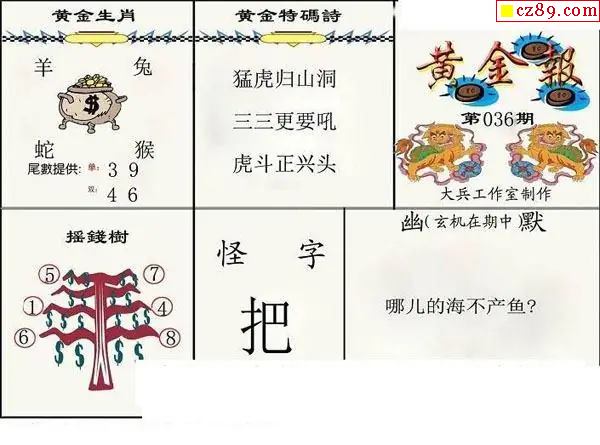 cz89.com
黄金生肖
羊 兔
蛇 猴
尾數提供: 单: 3 9
双: 4 6
黄金特碼詩
猛虎归山洞
三三更要吼
虎斗正兴头
黄金報
第036期
大兵工作室制作
摇錢樹
⑤ ⑦
① ④
⑥ ⑧
$ $ $ $ $ $
怪 字
把
幽(玄机在期中)默
哪儿的海不产鱼?